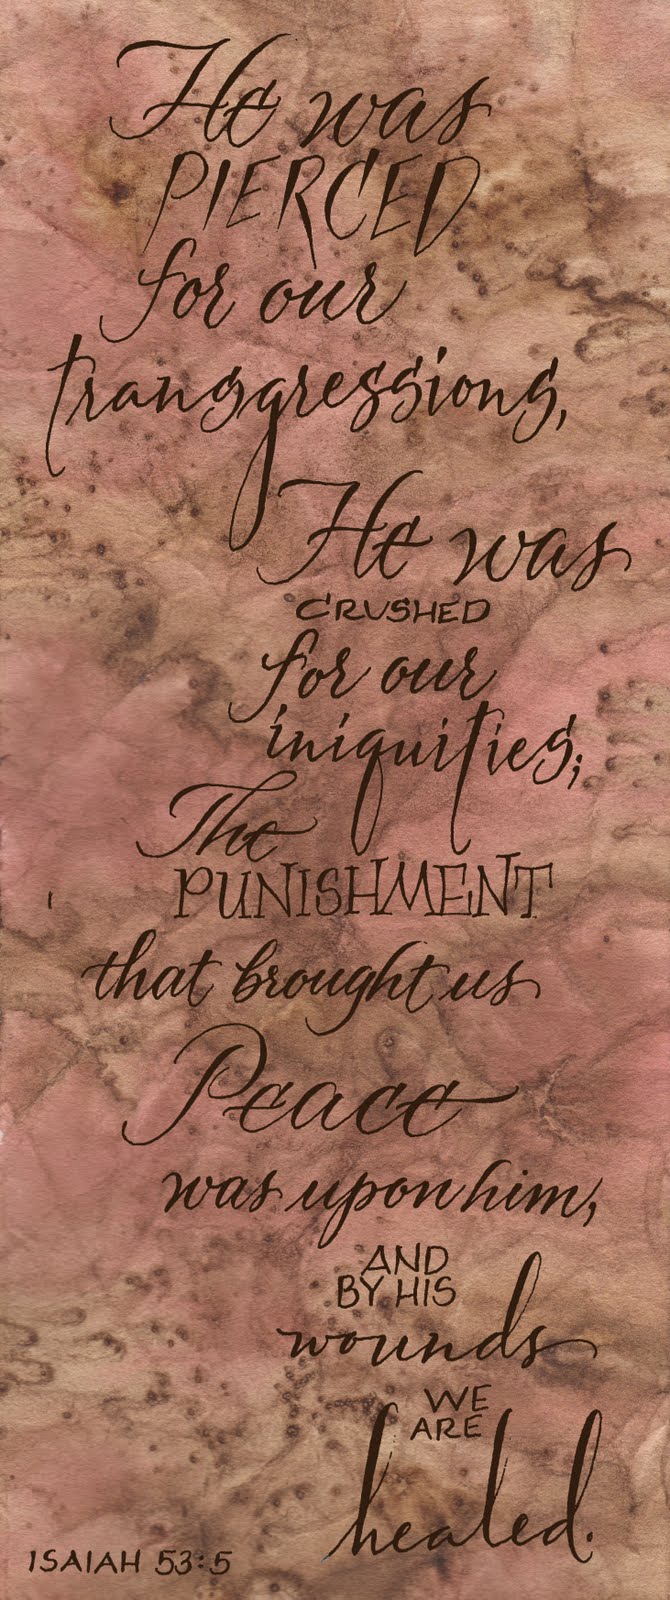 He was
PIERCED
for our
transgressions,
He was
CRUSHED
for our
iniquities;
The
PUNISHMENT
that brought us
Peace
was upon him,
AND
BY HIS
wounds
WE
ARE
healed.
ISAIAH 53:5